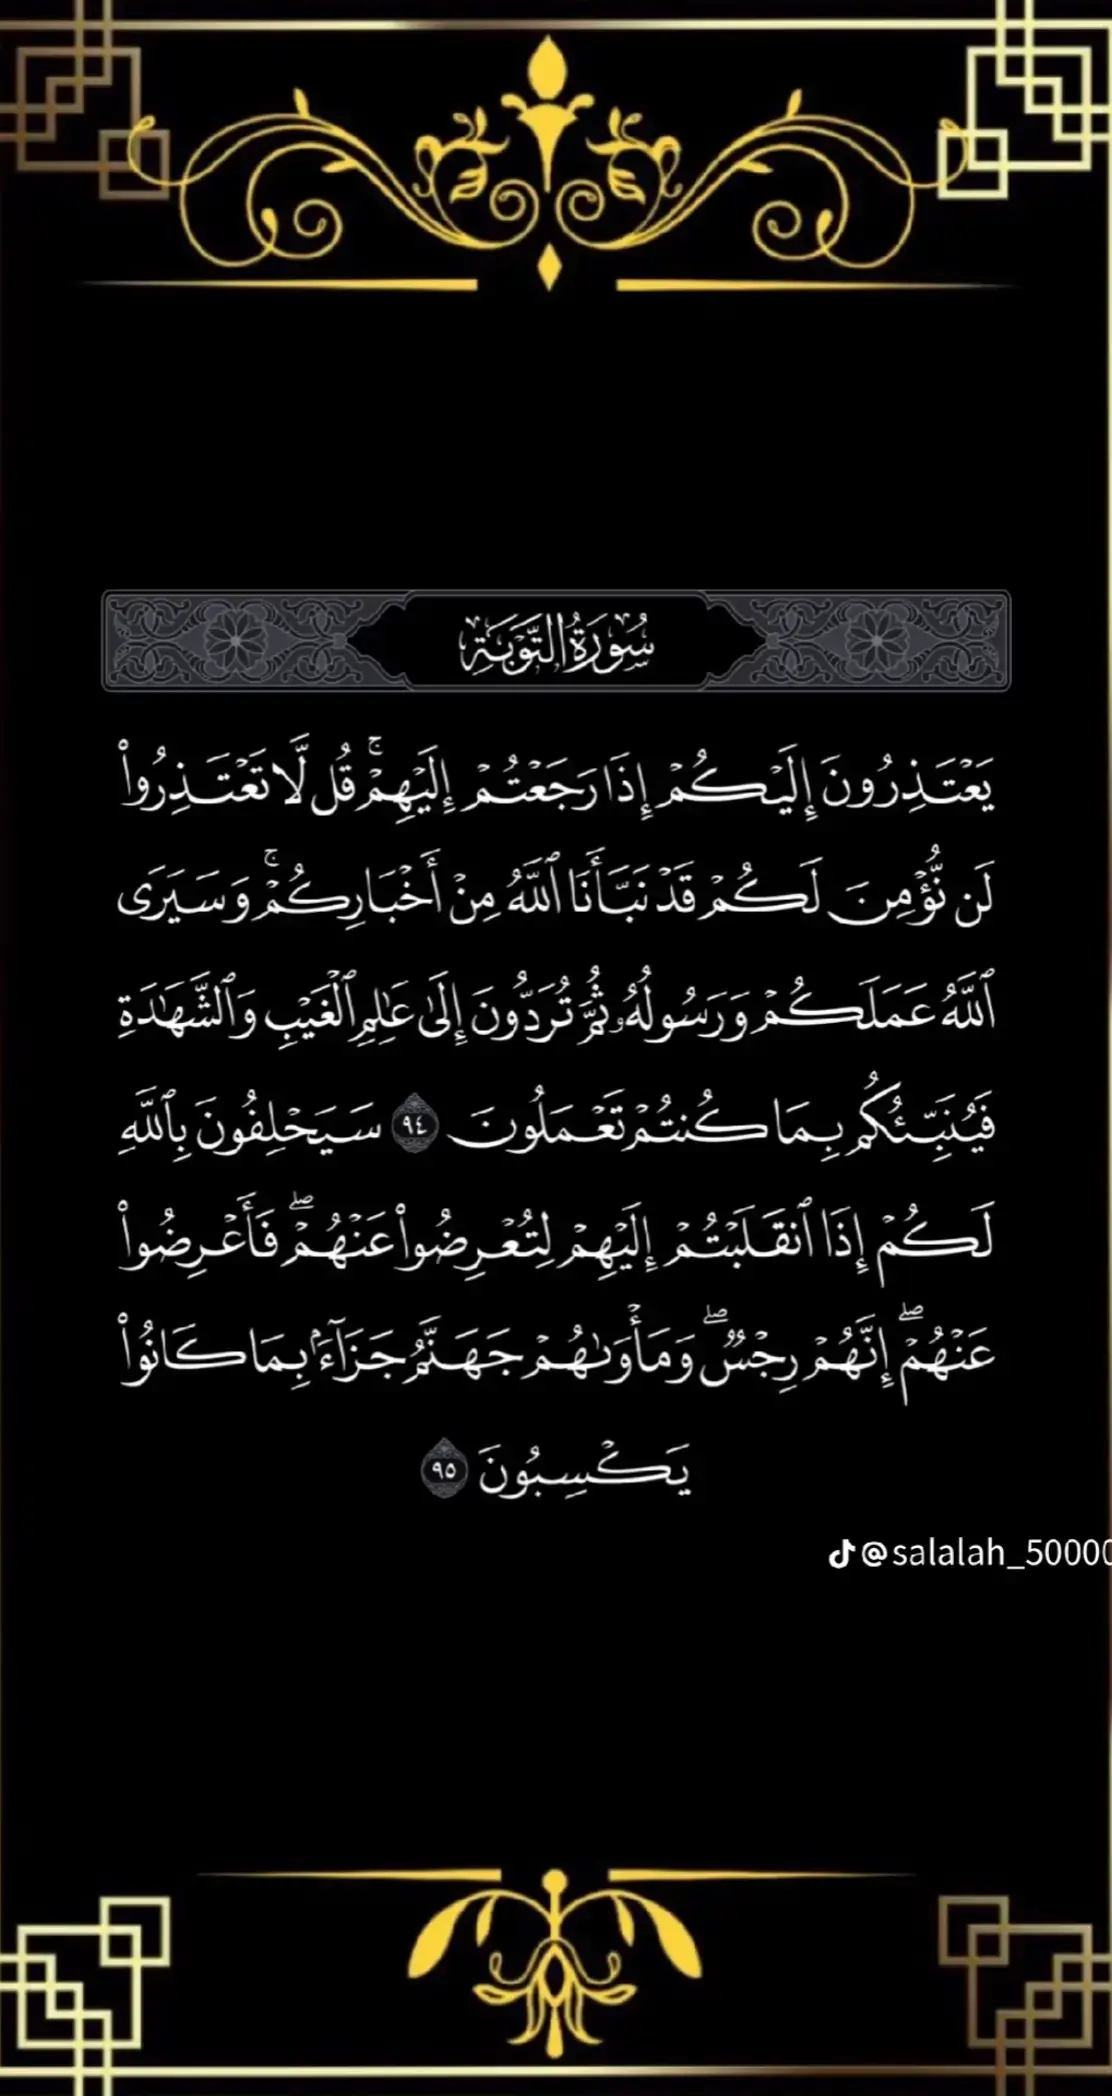 سُورَةُ التَّوْبَةِ
يَعْتَذِرُونَ إِلَيْكُمْ إِذَا رَجَعْتُمْ إِلَيْهِمْ ۚ قُل لَّا تَعْتَذِرُوا۟
لَن نُّؤْمِنَ لَكُمْ قَدْ نَبَّأَنَا ٱللَّهُ مِنْ أَخْبَارِكُمْ ۚ وَسَيَرَى
ٱللَّهُ عَمَلَكُمْ وَرَسُولُهُۥ ثُمَّ تُرَدُّونَ إِلَىٰ عَـٰلِمِ ٱلْغَيْبِ وَٱلشَّهَـٰدَةِ
فَيُنَبِّئُكُم بِمَا كُنتُمْ تَعْمَلُونَ ٩٤ سَيَحْلِفُونَ بِٱللَّهِ
لَكُمْ إِذَا ٱنقَلَبْتُمْ إِلَيْهِمْ لِتُعْرِضُوا۟ عَنْهُمْ ۖ فَأَعْرِضُوا۟
عَنْهُمْ ۖ إِنَّهُمْ رِجْسٌ ۖ وَمَأْوَىٰهُمْ جَهَنَّمُ جَزَآءًۢ بِمَا كَانُوا۟
يَكْسِبُونَ ٩٥
@salalah_50000